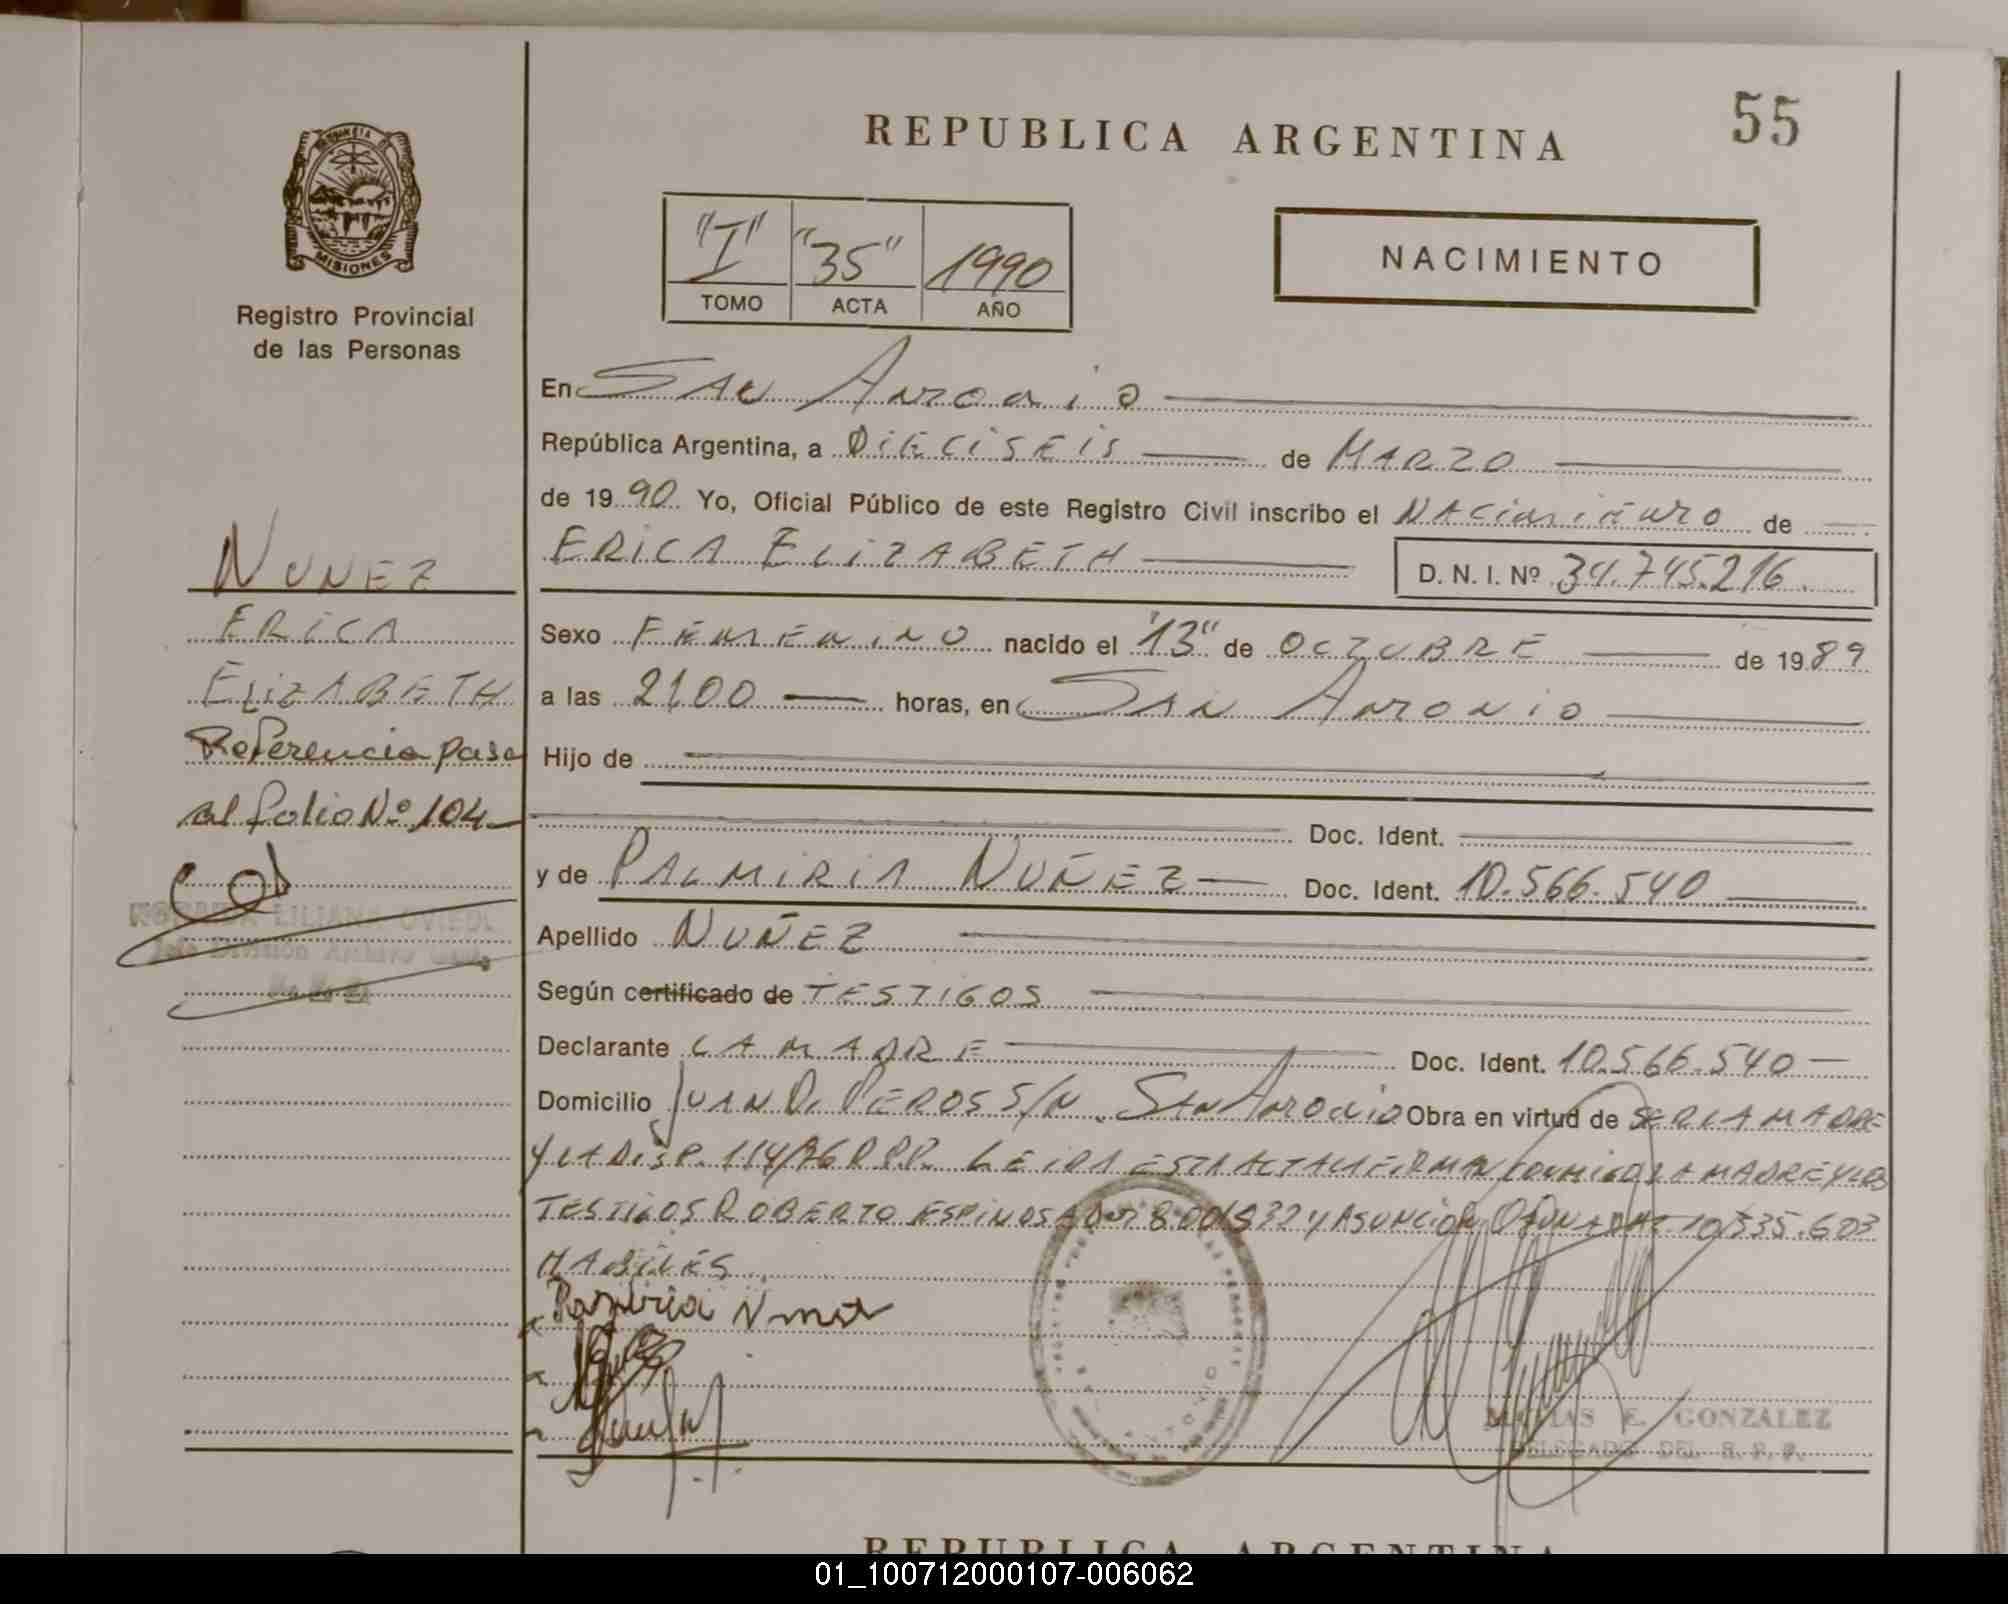 55
REPUBLICA ARGENTINA
"I" "35" 1990
TOMO ACTA AÑO
NACIMIENTO
MISIONES
Registro Provincial
de las Personas
NUNEZ
ERICA
ELIZABETH
Referencia pase
al folio Nº 104
LILIANA OVIEDO
En SAN ANTONIO
República Argentina, a DIECISEIS de MARZO
de 19 90 Yo, Oficial Público de este Registro Civil inscribo el NACIMIENTO de
ERICA ELIZABETH D. N. I. Nº 34.745.216
Sexo FEMENINO nacido el "13" de OCTUBRE de 19 89
a las 21,00 horas, en SAN ANTONIO
Hijo de
Doc. Ident.
y de PALMIRIA NUÑEZ Doc. Ident. 10.566.540
Apellido NUÑEZ
Según certificado de TESTIGOS
Declarante LA MADRE Doc. Ident. 10.566.540
Domicilio JUAN D. PEROS S/N. SAN ANTONIO Obra en virtud de SER LA MADRE
Y LA DISP. 114/86 RPP. LEIDA ESTA ACTA LA FIRMAN CONMIGO LA MADRE Y LOS
TESTIGOS ROBERTO ESPINOSA Y ASUNCION
HABILES
MATIAS E. GONZALEZ
DELEGADO DEL R. P. P.
REPUBLICA ARGENTINA
01_100712000107-006062